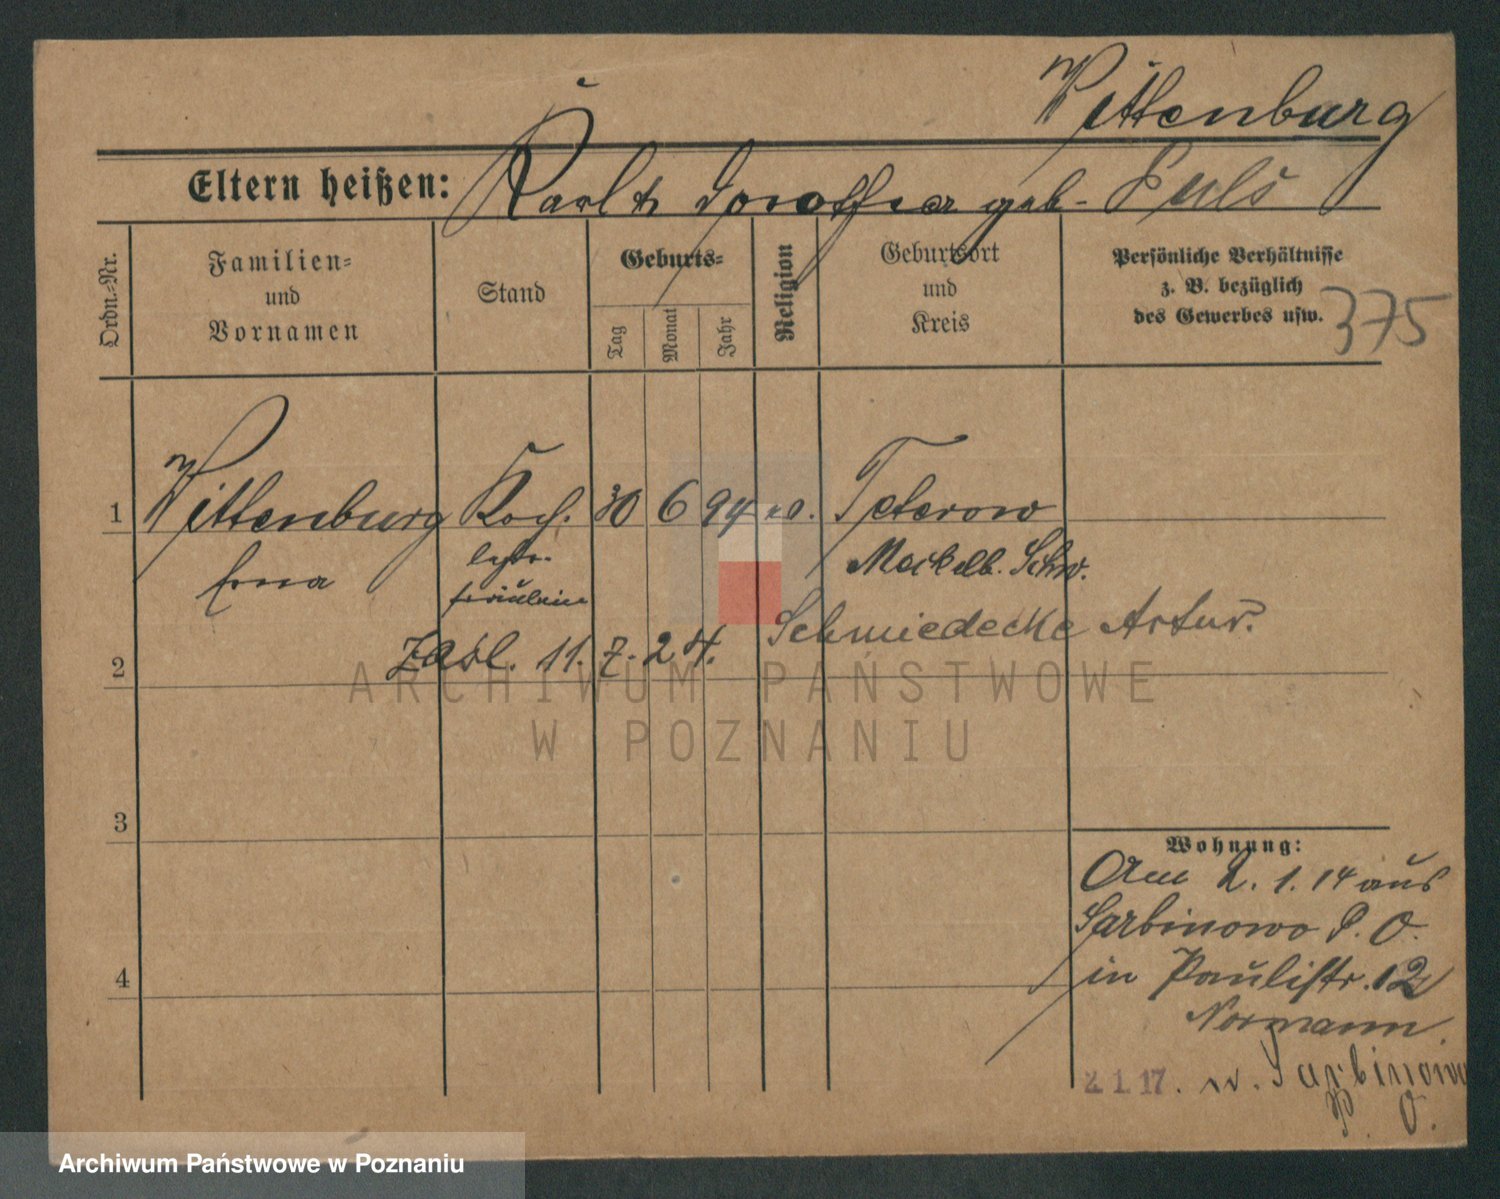 Wittenburg
Eltern heißen: Karl u Dorothea geb. Puls
Ordn.=Nr.
Familien=
und
Vornamen
Stand
Geburts=
Tag
Monat
Jahr
Religion
Geburtsort
und
Kreis
Persönliche Verhältnisse
z. B. bezüglich
des Gewerbes usw.
375
1 Wittenburg Koch. 30 6 94 ev. Teterow
Erna
fräulein
Meckelb. Schw.
Schmiedecke Artur.
2 11. 7. 24.
3
4
Wohnung:
Am 2. 1. 14 aus
Sarbinowo P. O.
in Paulistr. 12
Normann
2. 1. 17. n. Sarbinowo
P. O.
ARCHIWUM PAŃSTWOWE
W POZNANIU
Archiwum Państwowe w Poznaniu